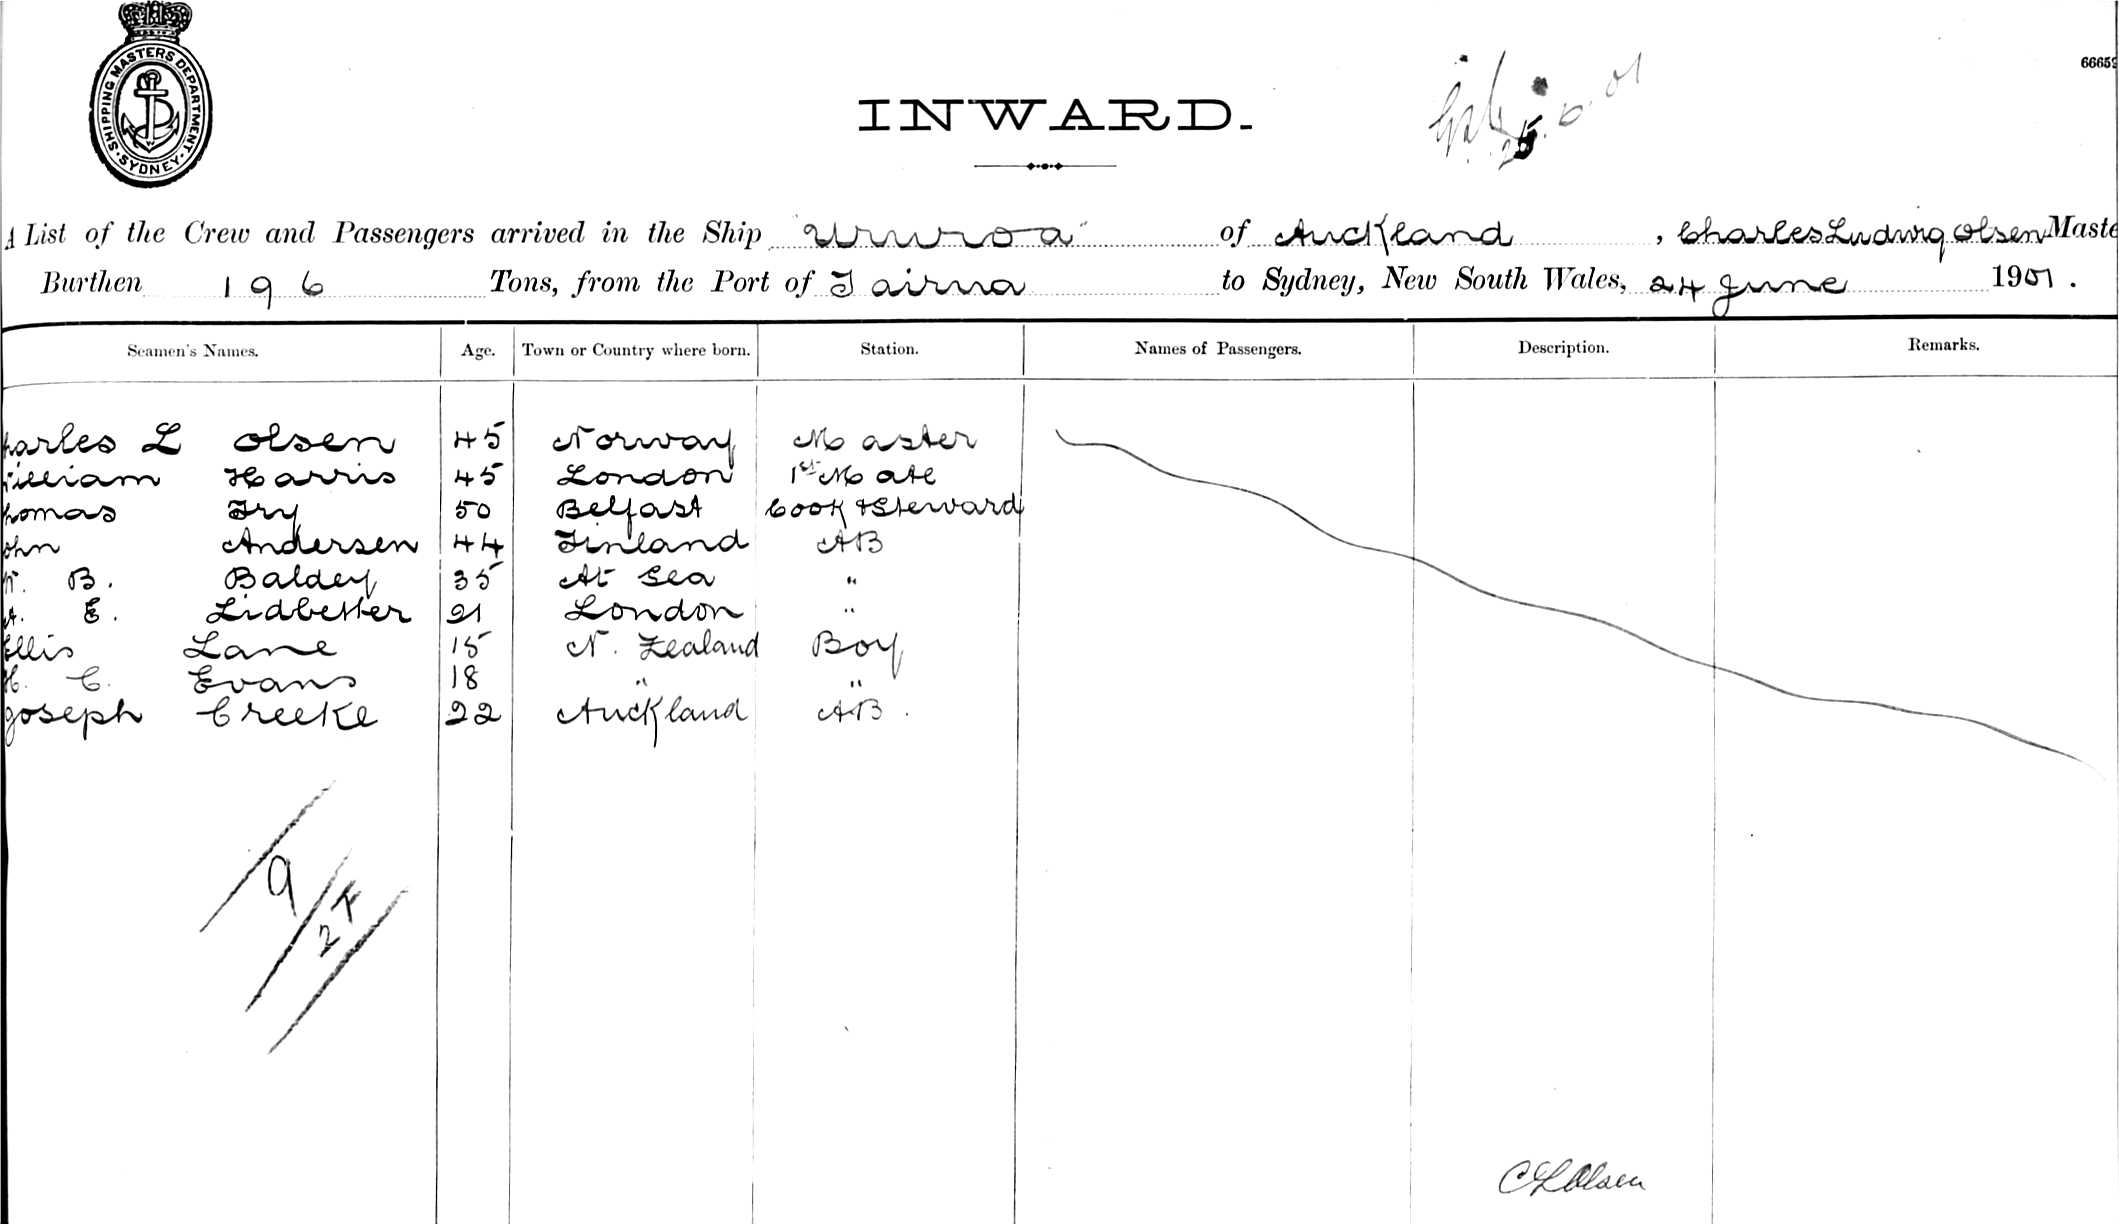 SHIPPING MASTERS DEPARTMENT. SYDNEY.
6665
INWARD.
25.6.01
A List of the Crew and Passengers arrived in the Ship "Ururoa" of Auckland, Charles Ludwig Olsen Maste
Burthen 196 Tons, from the Port of Tairua to Sydney, New South Wales, 24 June 1901.
Seamen's Names. Age. Town or Country where born. Station. Names of Passengers. Description. Remarks.
harles L Olsen 45 Norway Master
illiam Harris 45 London 1st Mate
homas Fry 50 Belfast Cook & Steward
ohn Andersen 44 Finland AB
W. B. Baldey 35 At Sea "
A. E. Lidbetter 21 London "
Ellis Lane 15 N. Zealand Boy
H. C. Evans 18 " "
Joseph Creeke 22 Auckland AB.
9
2
C L Olsen